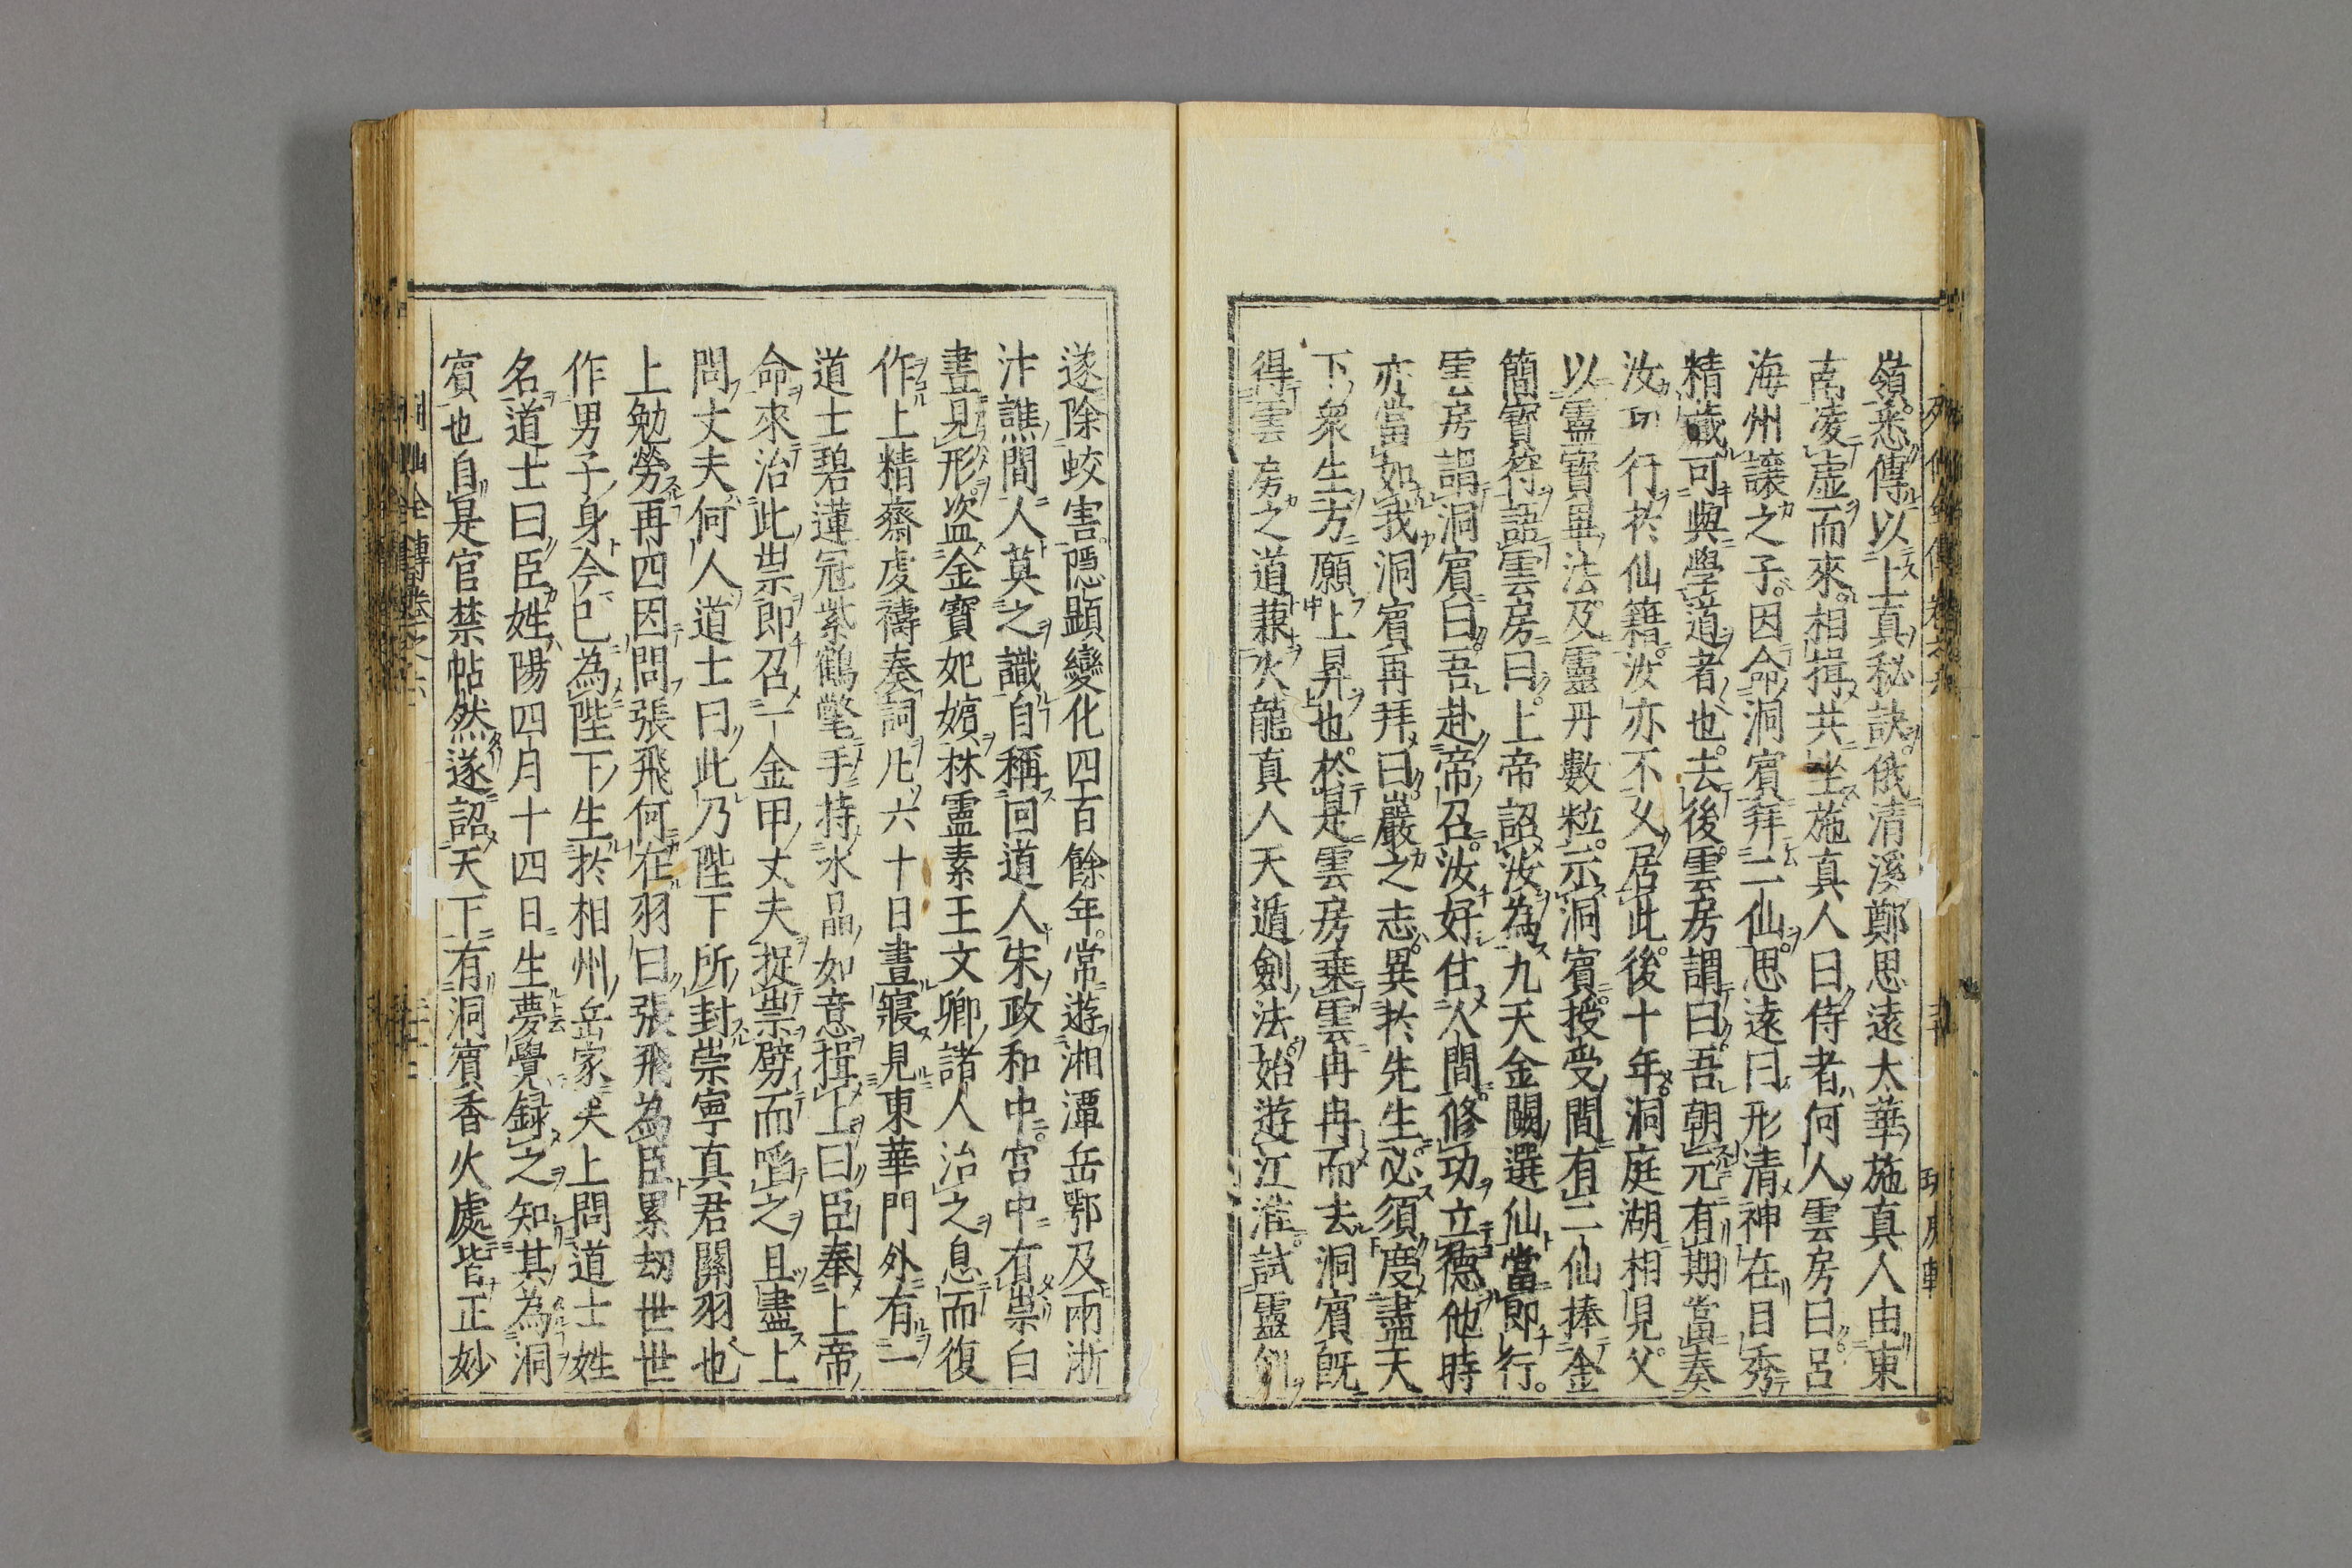 嶺悉傳以上真秘訣俄清溪鄭思遠太華施真人由東
南凌虛而來相揖共坐施真人曰侍者何人雲房曰呂
海州讓之子因命洞賓拜二仙思遠曰形清神在目秀
精藏可與學道者也去後雲房謂曰吾朝元有期當奏
汝功行於仙籍汝亦不久居此後十年洞庭湖相見父
以靈寶畢法及靈丹數粒示洞賓授受間有二仙捧金
簡寶符語雲房曰上帝詔汝為九天金闕選仙當即行
雲房謂洞賓曰吾赴帝召汝好住人間修功立德他時
亦當如我洞賓再拜曰巖之志異於先生必須度盡天
下衆生方願上昇也於是雲房乗雲冉冉而去洞賓既
得雲房之道兼火龍真人天遁劍法始遊江淮試靈劍
遂除蛟害隱顯變化四百餘年常遊湘潭岳鄂及兩浙
汴譙間人莫之識自稱回道人宋政和中宮中有祟白
晝見形盜金寶妃嬪林靈素王文卿諸人治之息而復
作上精齋虔禱奏詞凡六十日晝寢見東華門外有一
道士碧蓮冠紫鶴氅手持水晶如意揖上曰臣奉上帝
命來治此祟即召一金甲丈夫捉祟劈而啗之且盡上
問丈夫何人道士曰此乃陛下所封崇寧真君關羽也
上勉勞再四因問張飛何在羽曰張飛為臣累劫世世
作男子身今已為陛下生於相州岳家矣上問道士姓
名道士曰臣姓陽四月十四日生夢覺録之知其為洞
賓也自是官禁帖然遂詔天下有洞賓香火處皆正妙
仙全傳卷之六